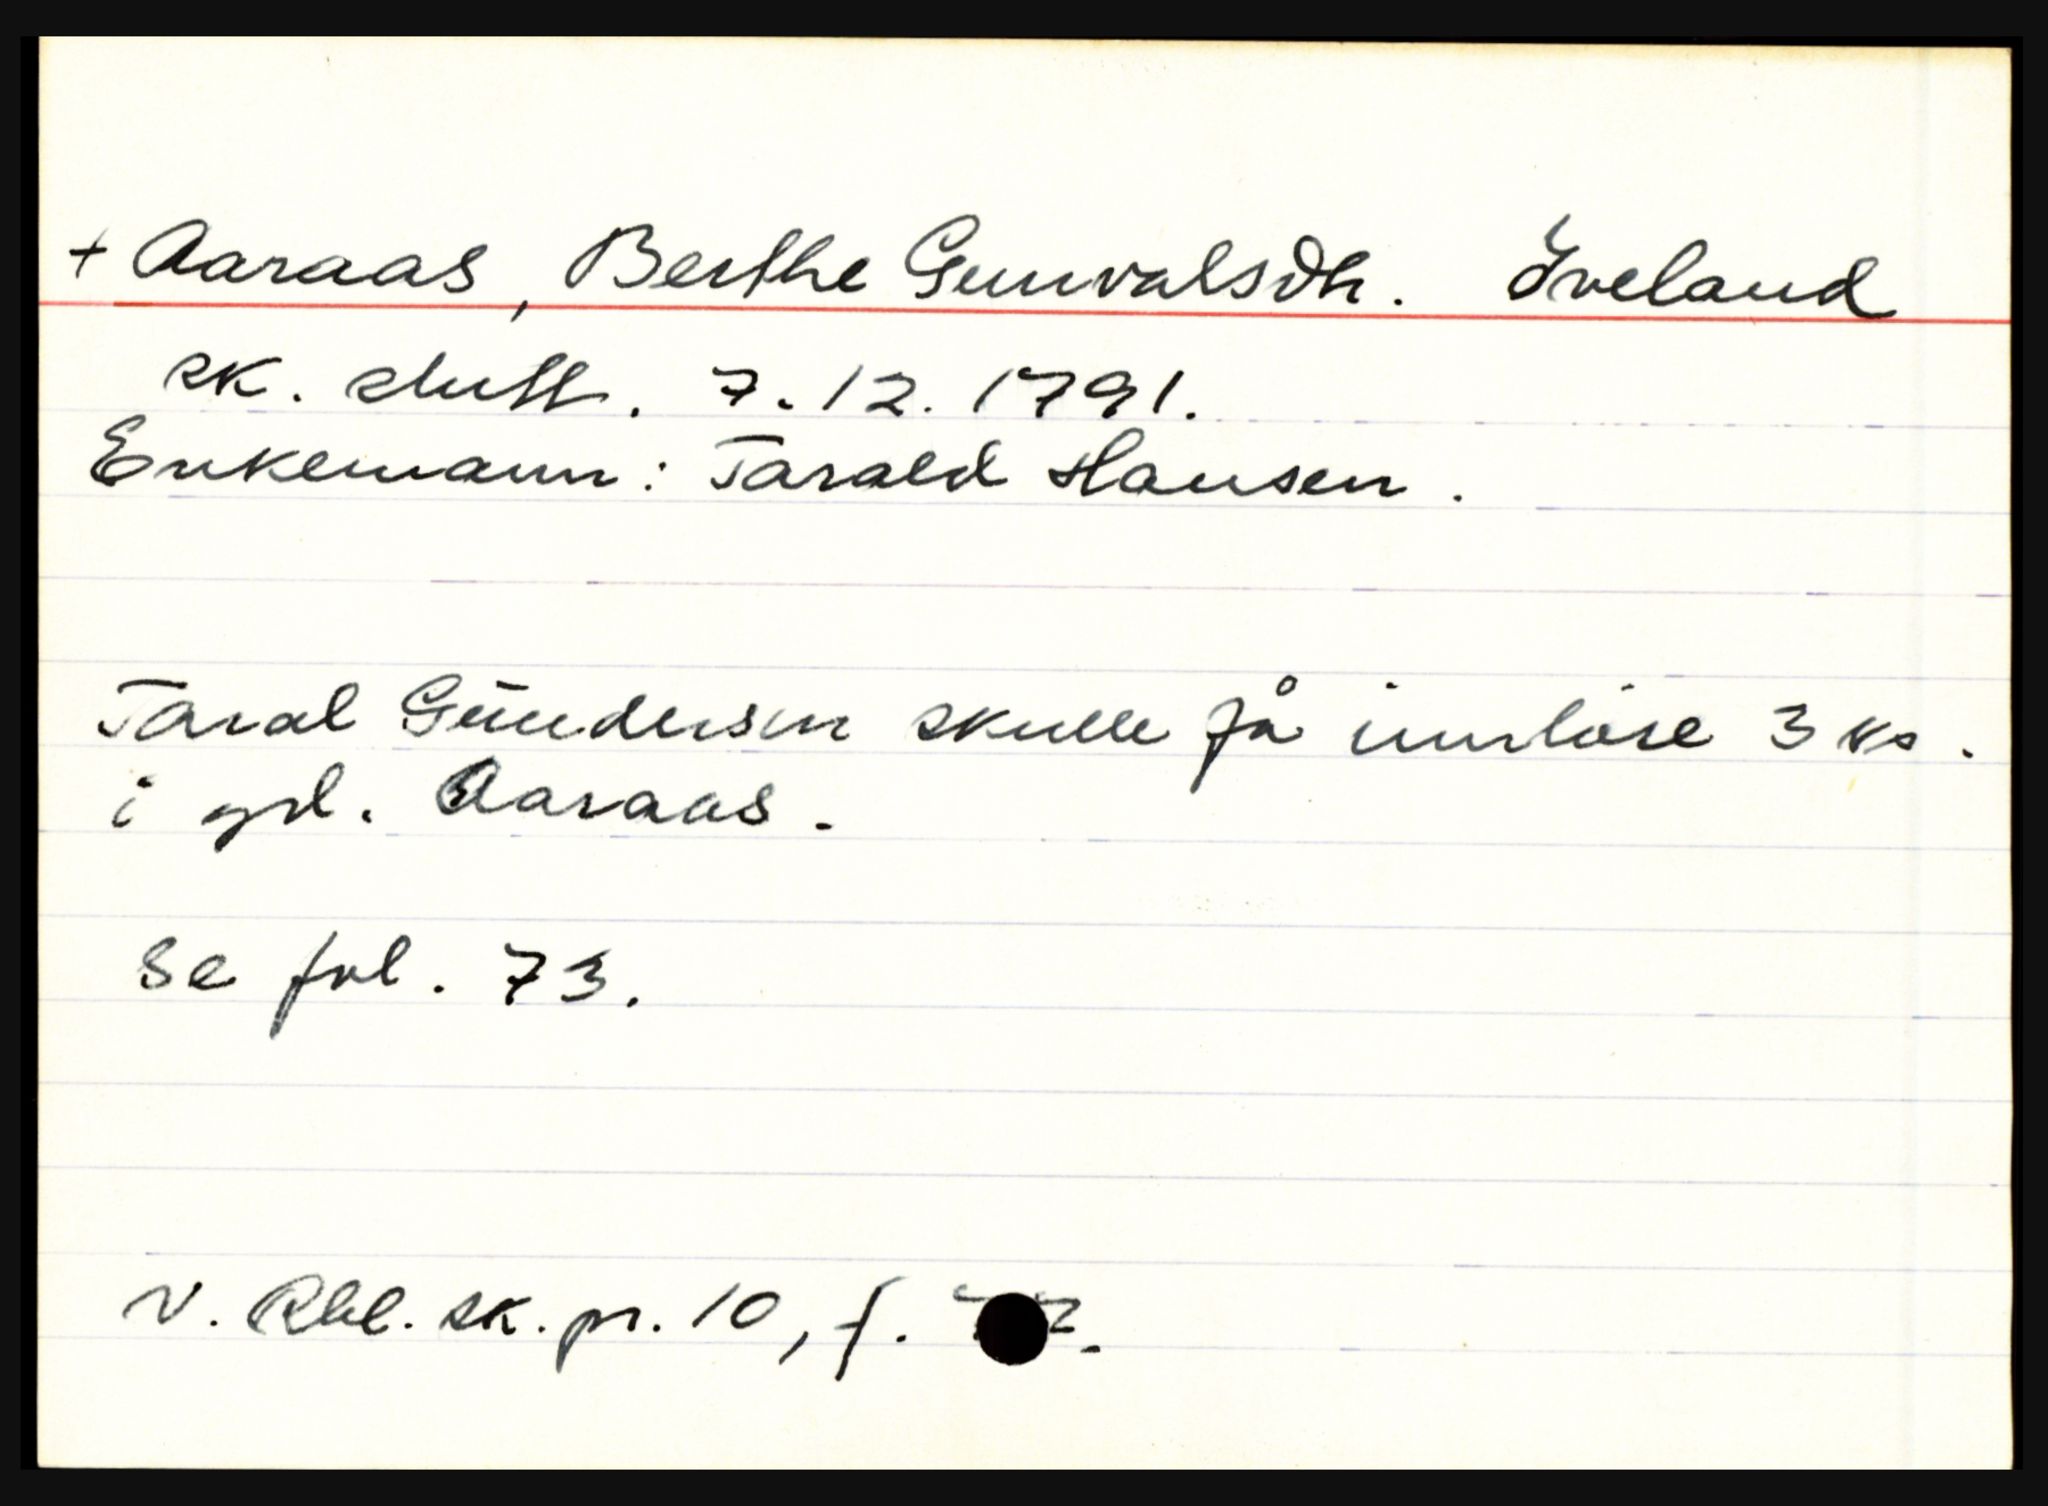 + Aaraas, Berthe Gunvalsdtr. Iveland
sk. slutt. 7.12.1791.
Enkemann: Tarald Hansen.
Taral Gundersen skulle få innløse 3 ks.
i grd. Aaraas.
Se fol. 73.
N. Rbl. sk. pr. 10, f.